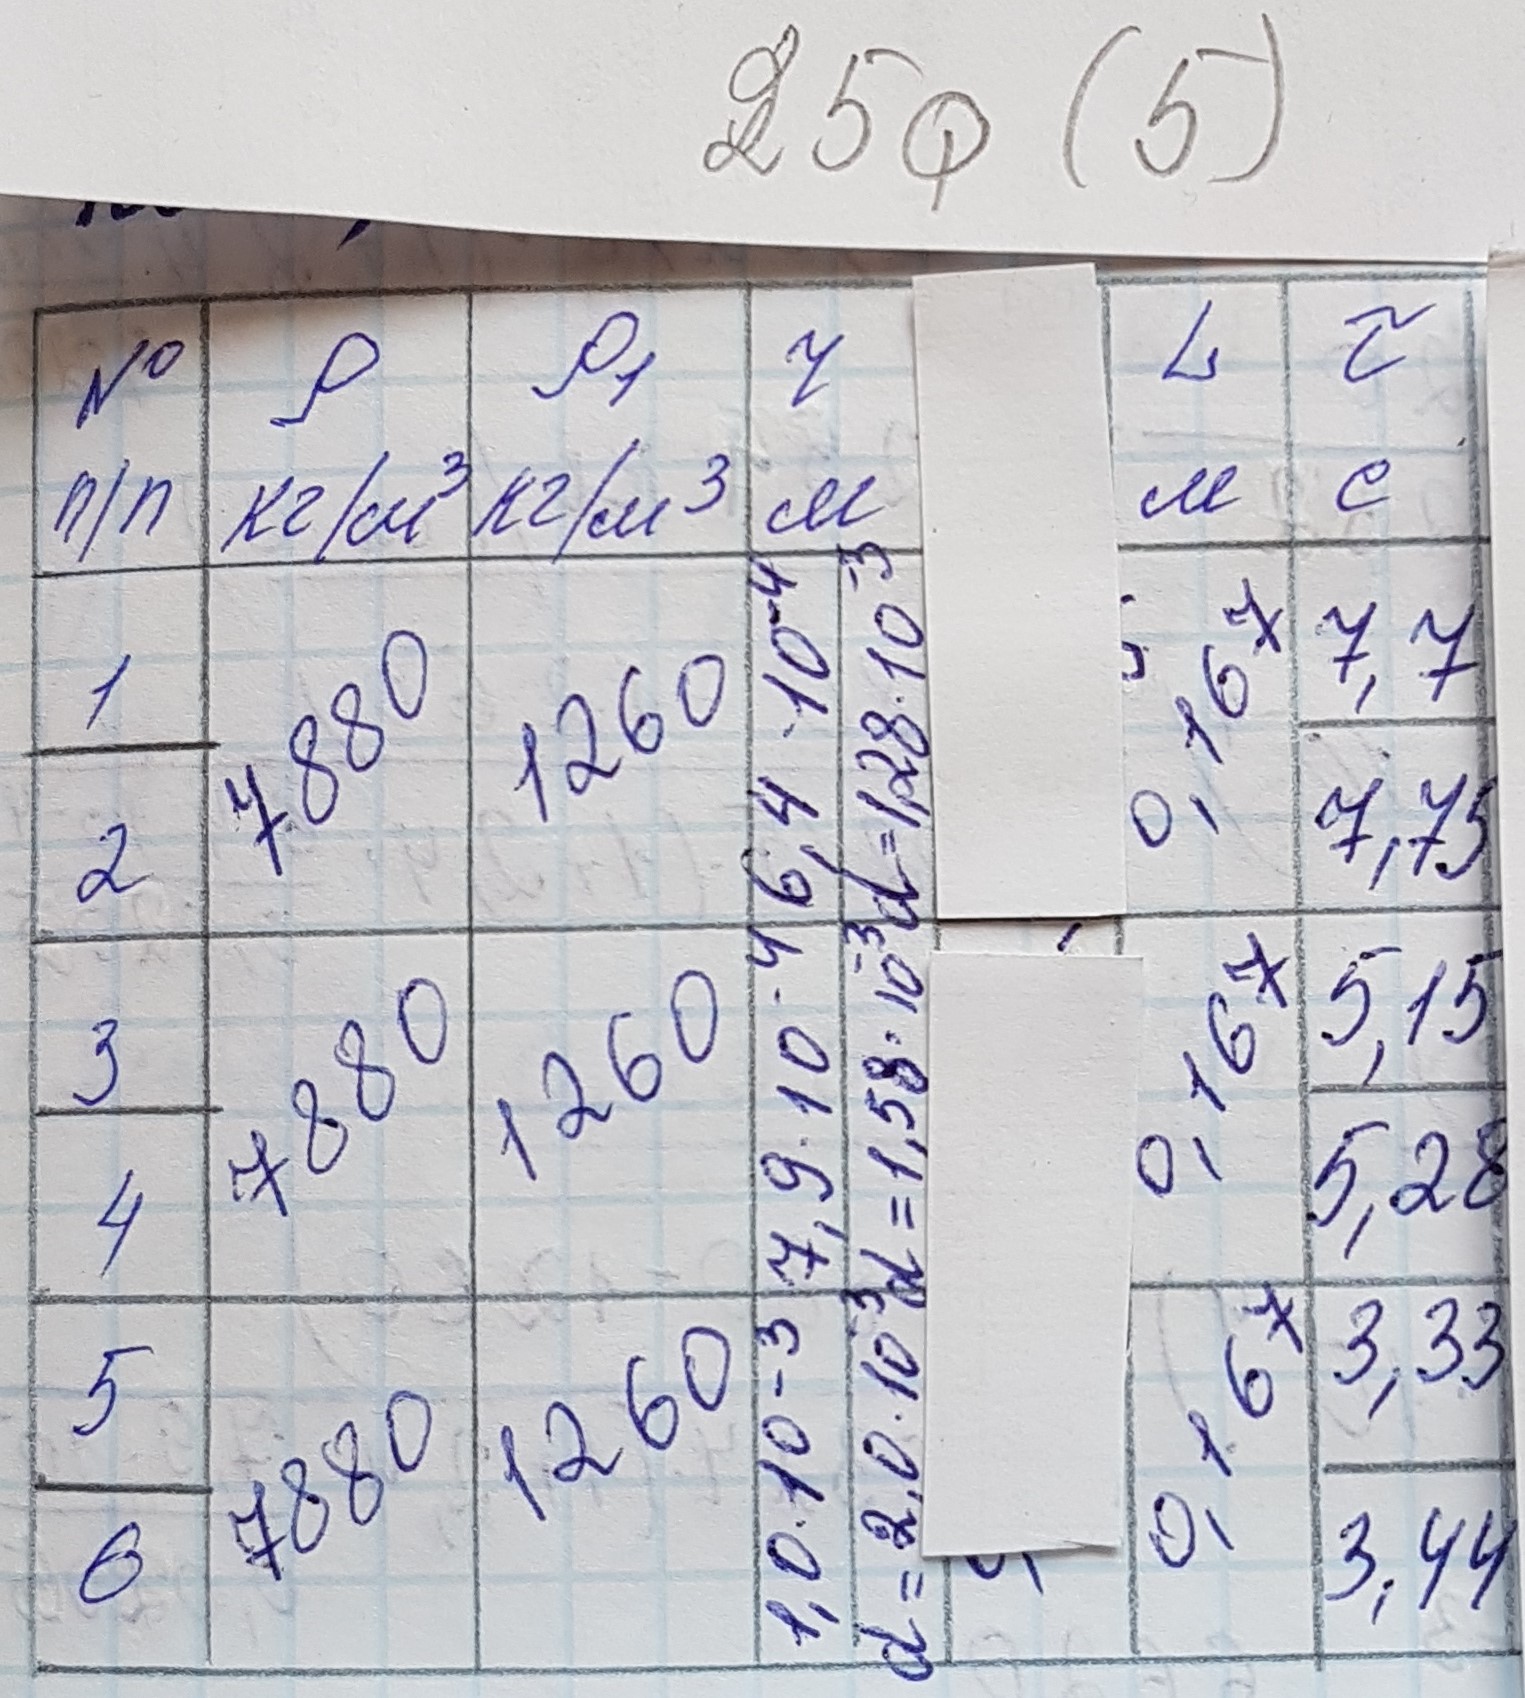 25ф (5)
№ п/п ρ кг/м³ ρ₁ кг/м³ r м L м τ с
1 7880 1260 6,4 · 10⁻⁴ d = 1,28 · 10⁻³ 0,167 7,7
2 7,75
3 7880 1260 7,9 · 10⁻⁴ d = 1,58 · 10⁻³ 0,167 5,15
4 5,28
5 7880 1260 1,0 · 10⁻³ d = 2,0 · 10⁻³ 0,167 3,33
6 3,44